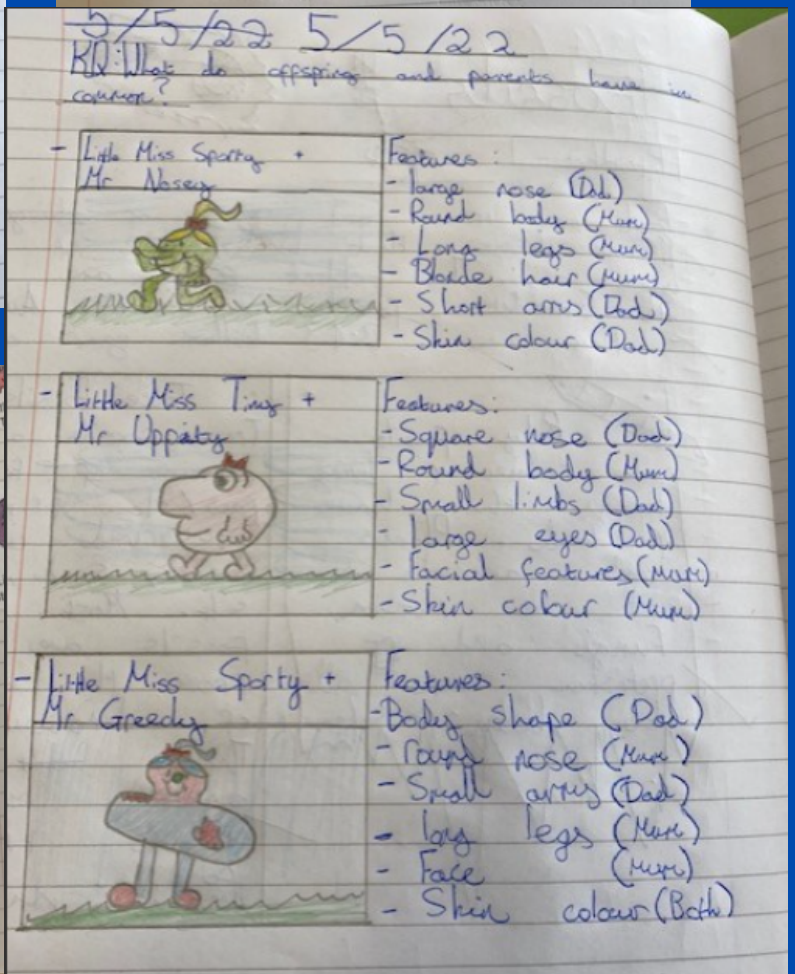 5/5/22 5/5/22
KQ: What do offspring and parents have in
common?
- Little Miss Sporty +
Mr Nosey
Features:
- large nose (Dad)
- Round body (Mum)
- Long legs (Mum)
- Blonde hair (Mum)
- Short arms (Dad)
- Skin colour (Dad)
- Little Miss Tiny +
Mr Uppity
Features:
- Square nose (Dad)
- Round body (Mum)
- Small limbs (Dad)
- large eyes (Dad)
- Facial features (Mum)
- Skin colour (Mum)
- Little Miss Sporty +
Mr Greedy
Features:
- Body shape (Dad)
- round nose (Mum)
- Small arms (Dad)
- long legs (Mum)
- Face (Mum)
- Skin colour (Both)